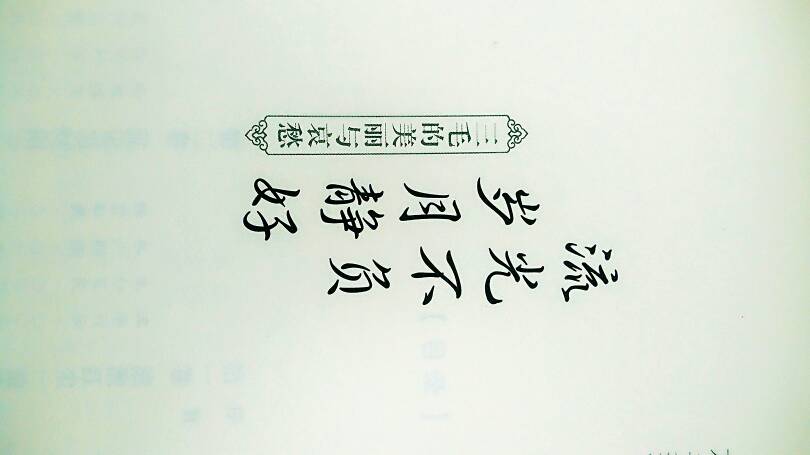 流光不负
岁月静好
三毛的美丽与哀愁